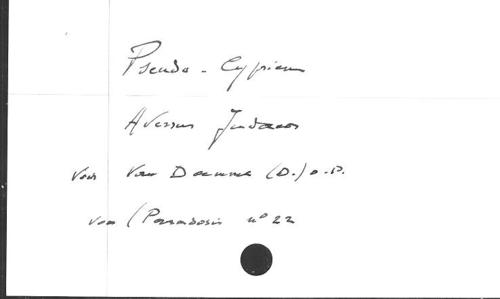 Pseudo - Cyprien
Adversus Judaeos
voir Van Damme (D.) o.p.
voir (Paradosis n° 22